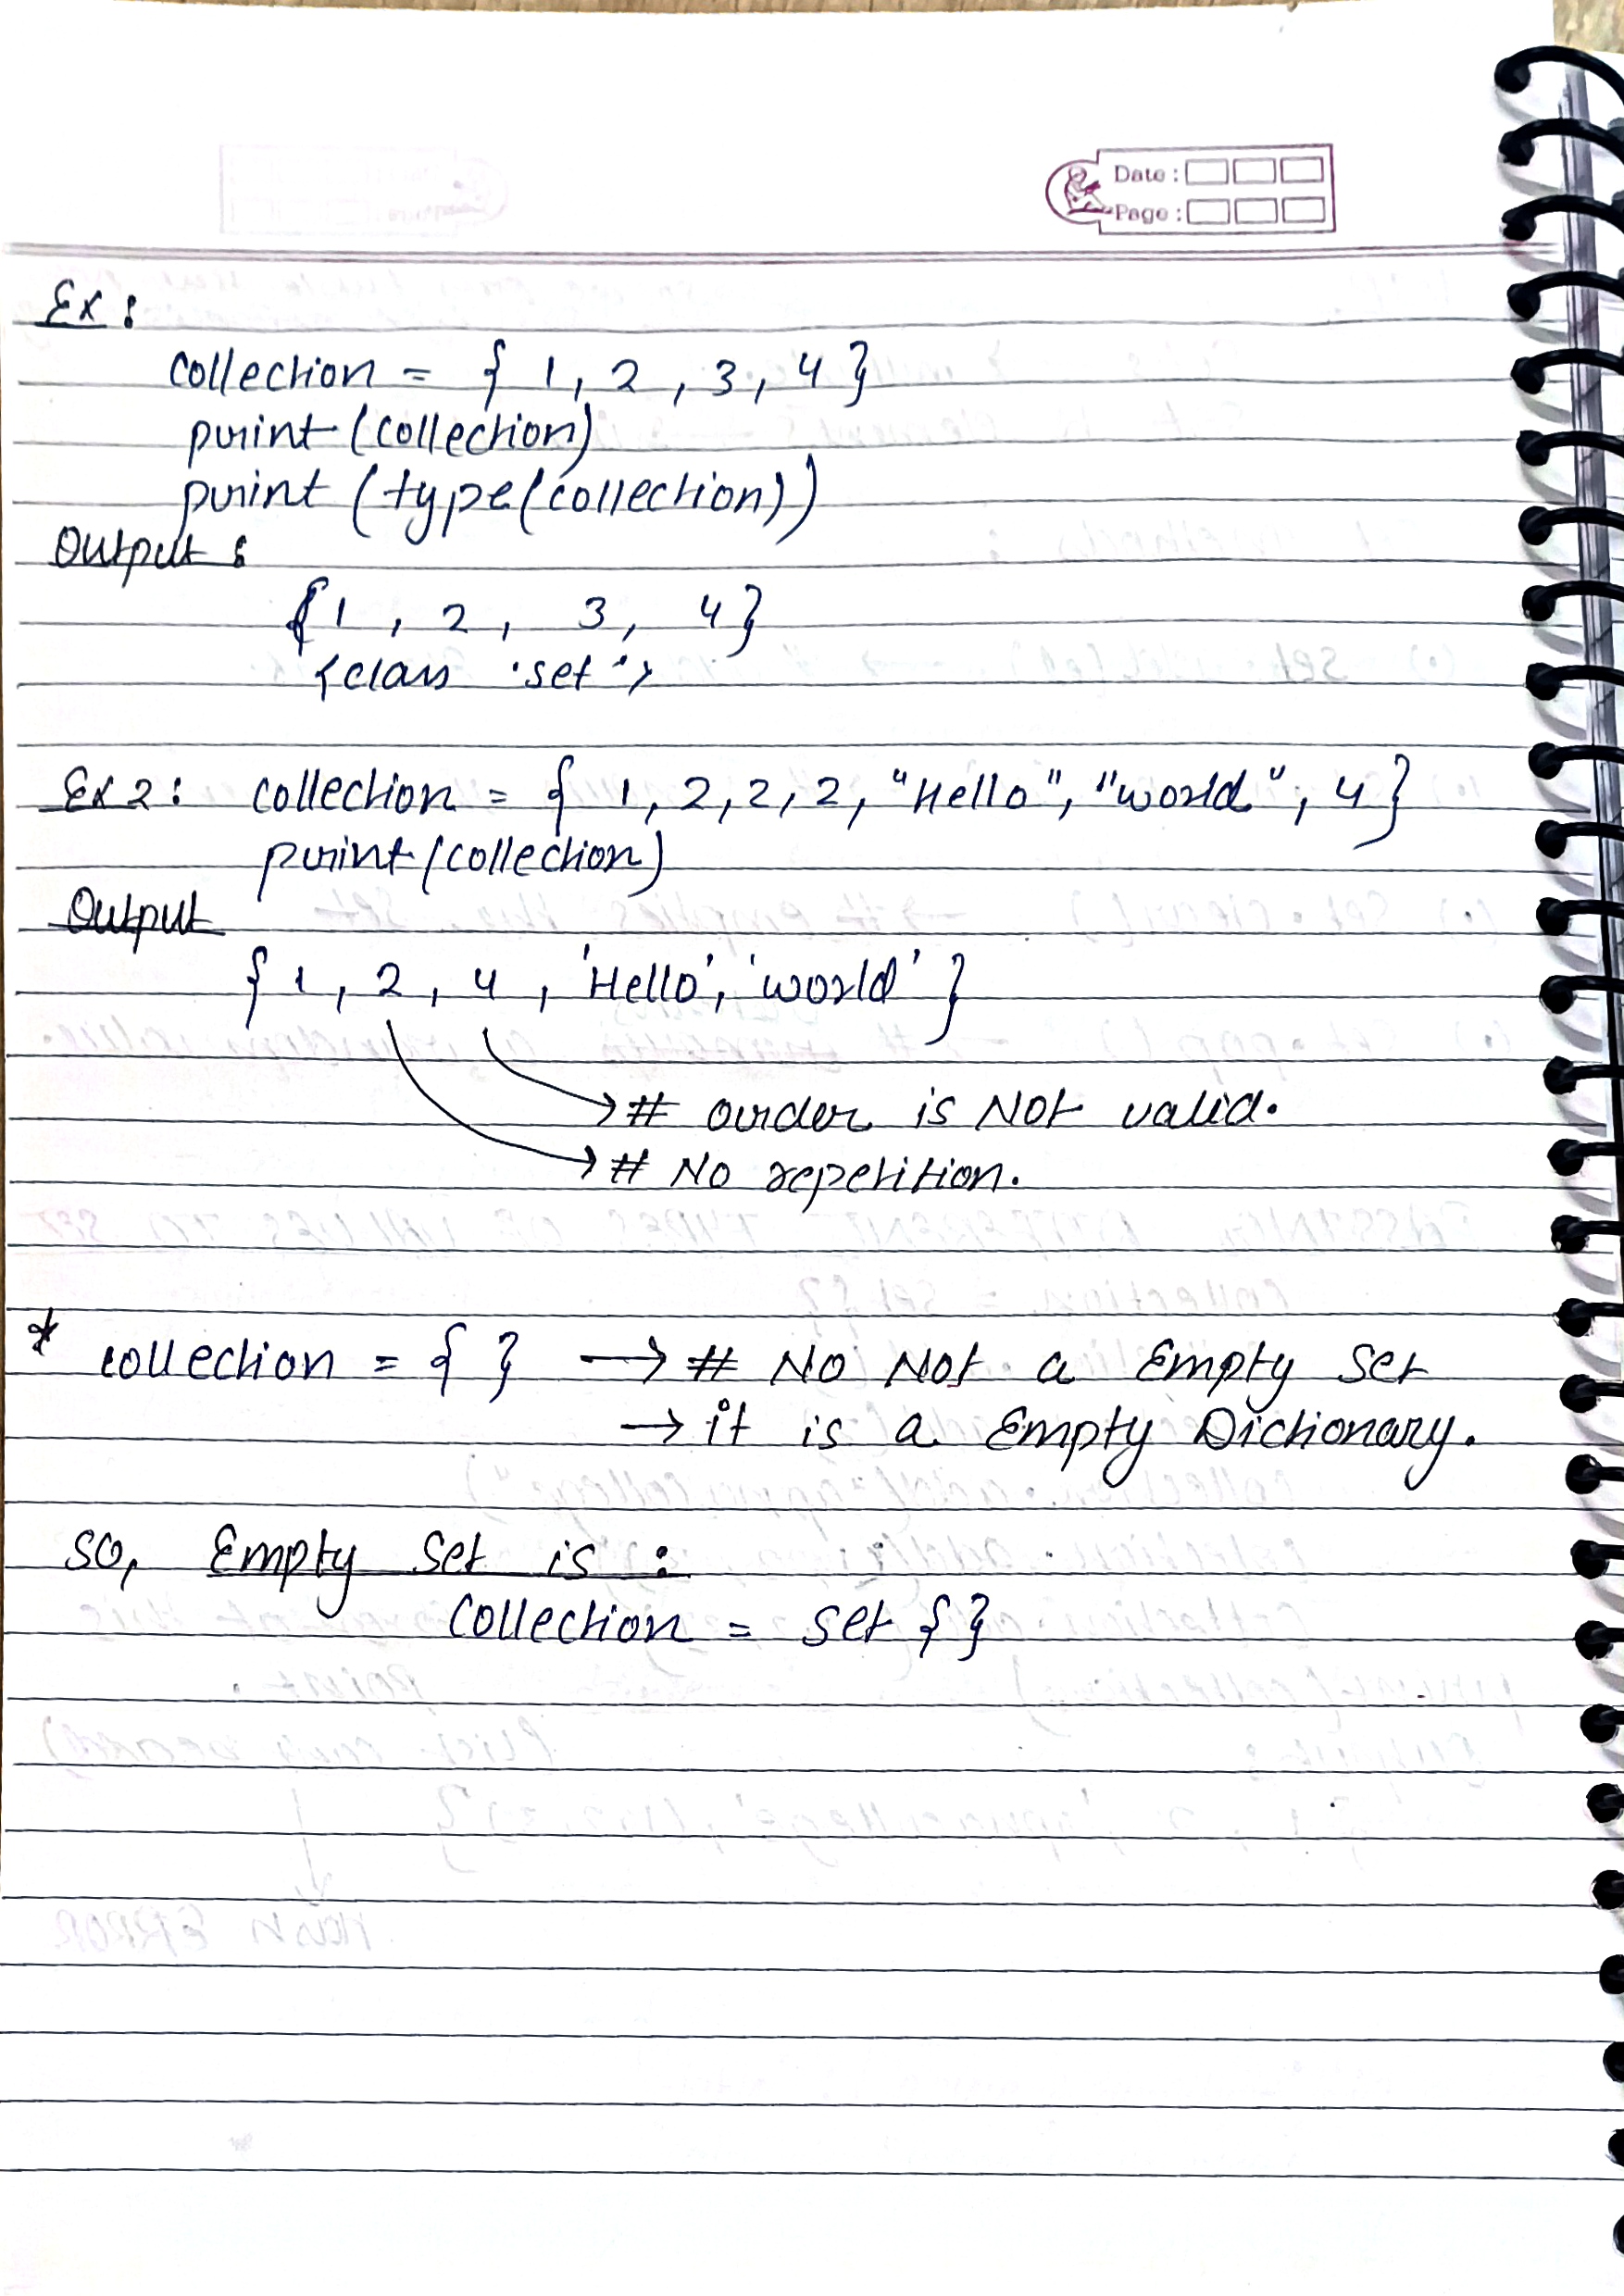 Date :
Page :
Ex :
collection = { 1, 2, 3, 4 }
print (collection)
print (type(collection))
Output :
{1, 2, 3, 4}
<class 'set'>
Ex 2 : collection = { 1, 2, 2, 2, "Hello", "world", 4 }
print (collection)
Output
{ 1, 2, 4, 'Hello', 'world' }
→ # order is NOt valid.
→ # No repetition.
* collection = { } → # NO Not a Empty Set
→ it is a Empty Dictionary.
so, Empty set is :
collection = set { }